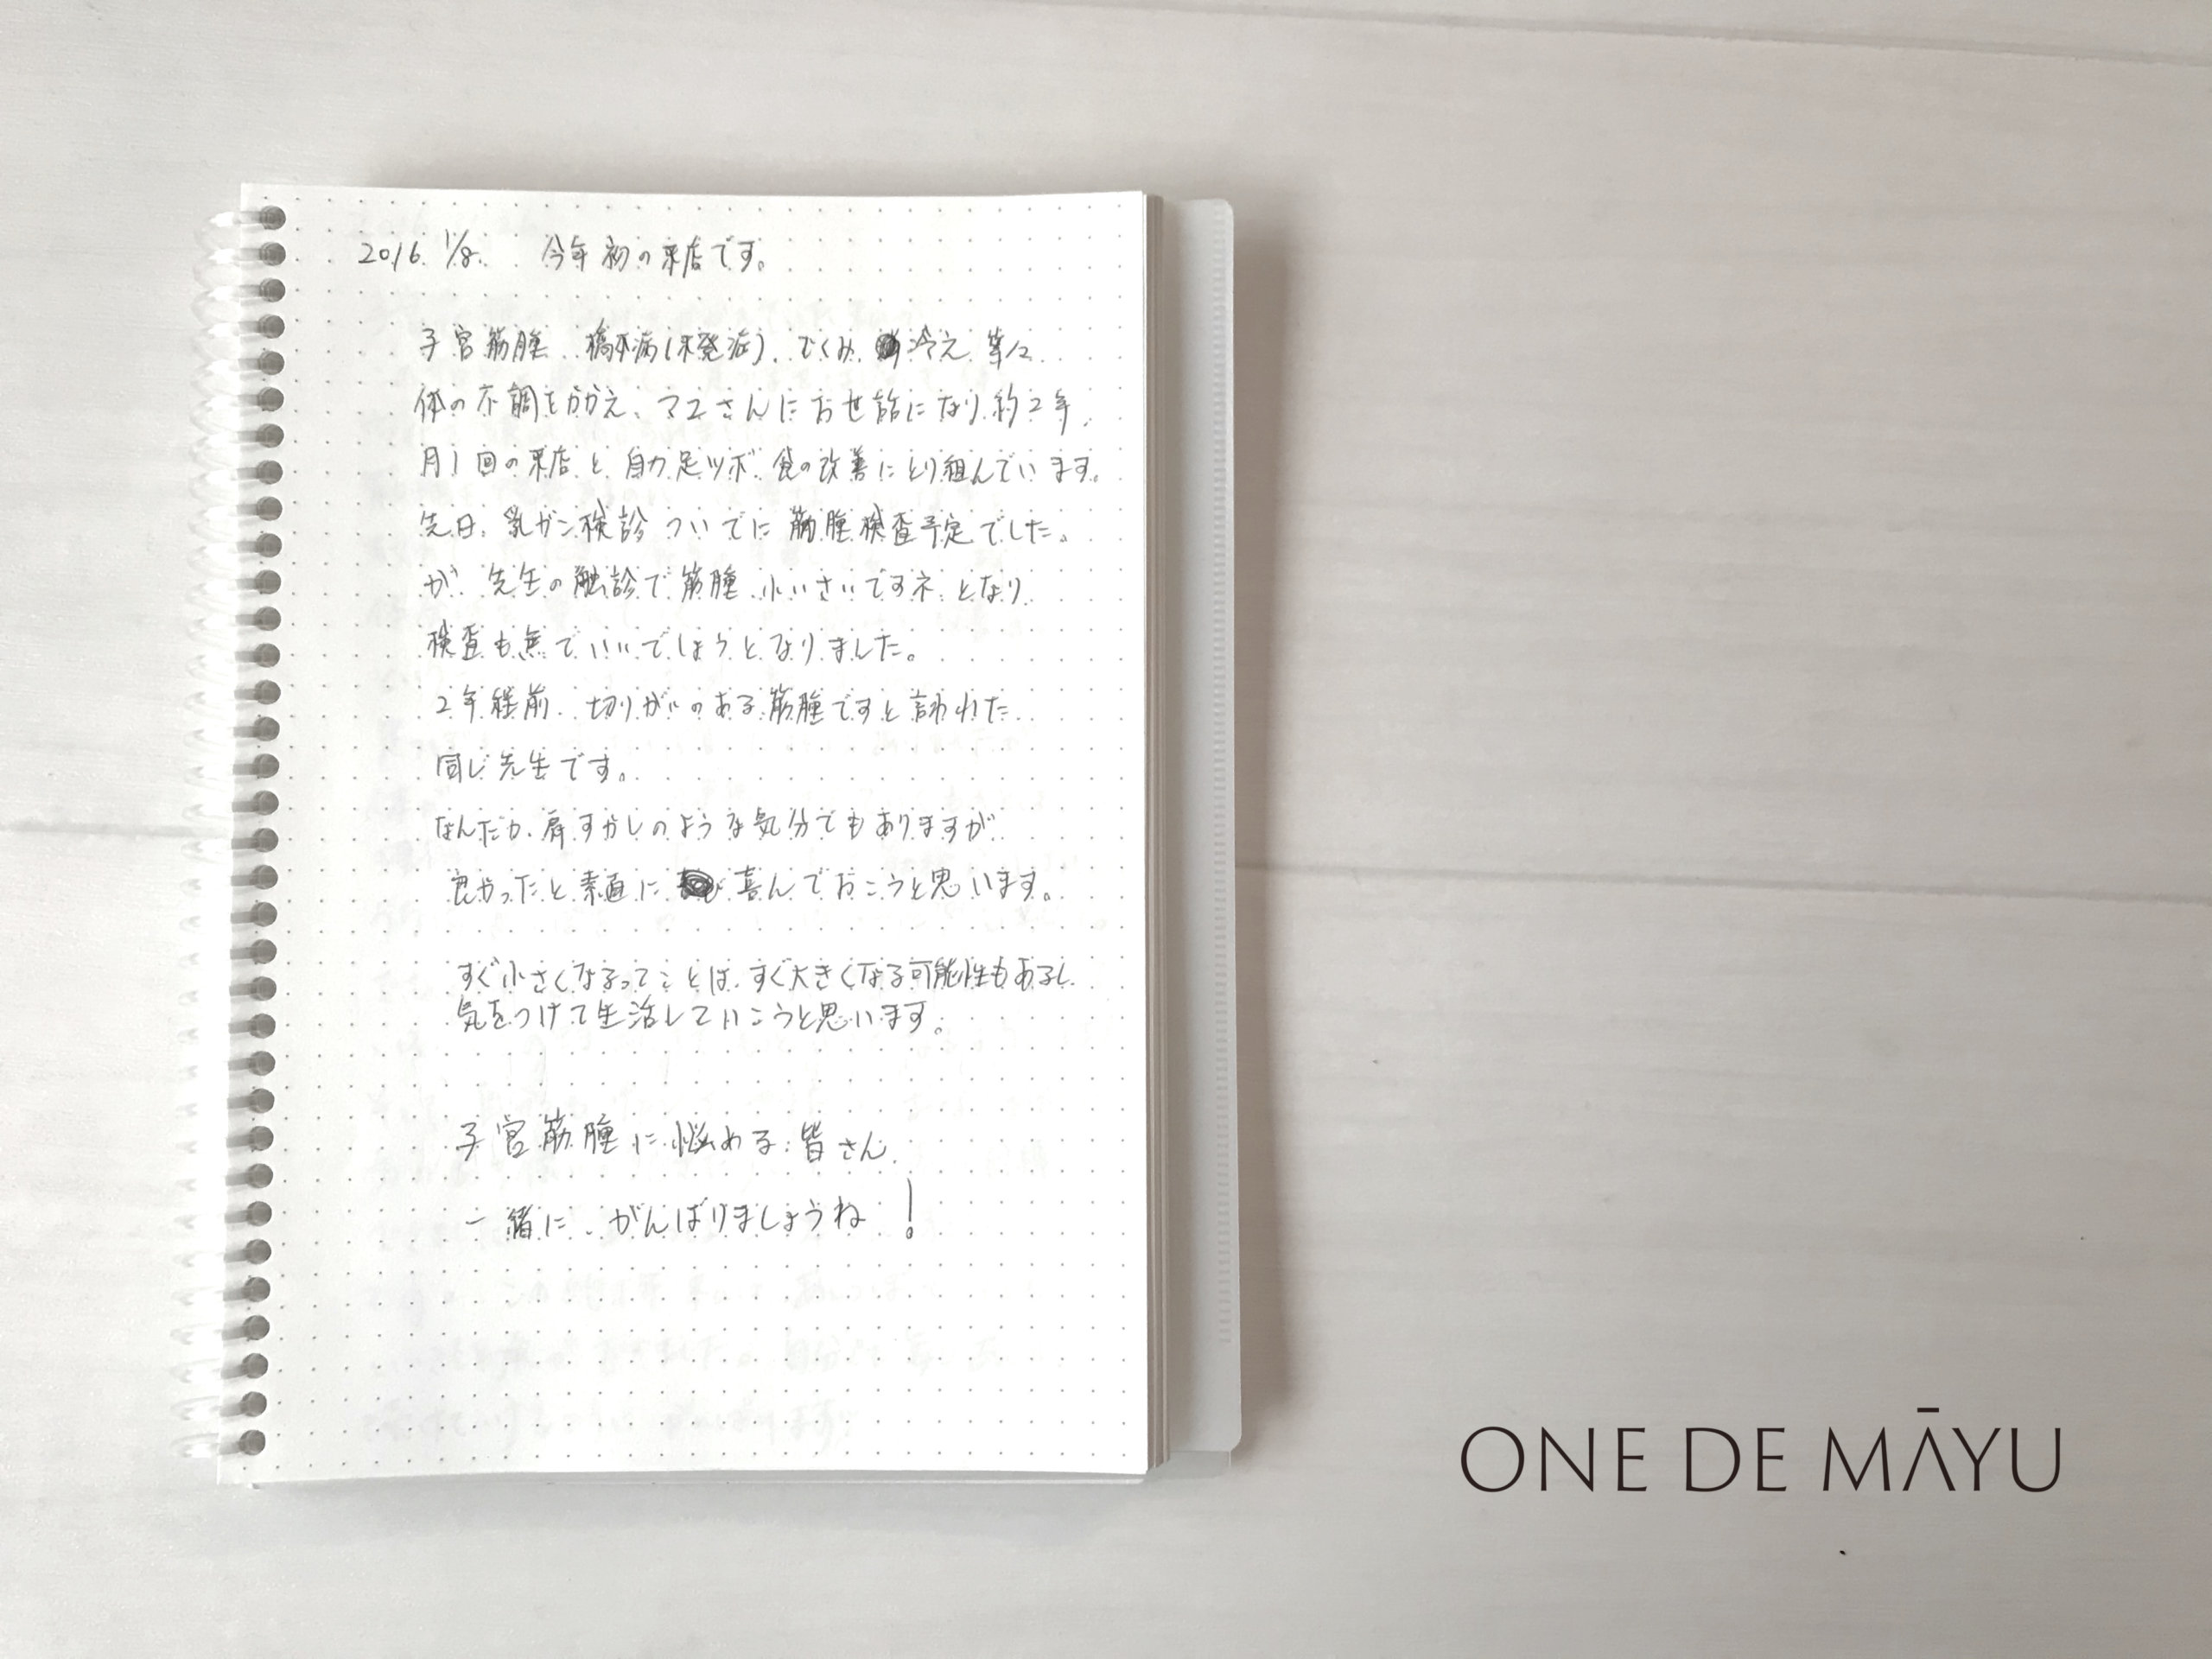 2016. 1/8. 今年初の来店です。
子宮筋腫、橋本病(未発症)、むくみ、冷え 等々
体の不調をかかえ、マユさんにお世話になり約2年、
月1回の来店と自力足ツボ、食の改善にとり組んでいます。
先日、乳ガン検診ついでに筋腫検査予定でした。
が、先生の触診で筋腫、小いさいですネ、となり
検査も無でいいでしょうとなりました。
2年程前、切りがいのある筋腫ですと言われた
同じ先生です。
なんだか、肩すかしのような気分でもありますが
良かったと素直に喜んでおこうと思います。
すぐ小さくなるってことは、すぐ大きくなる可能性もあるし、
気をつけて生活していこうと思います。
子宮筋腫に悩める皆さん、
一緒に、がんばりましょうね!
ONE DE MĀYU